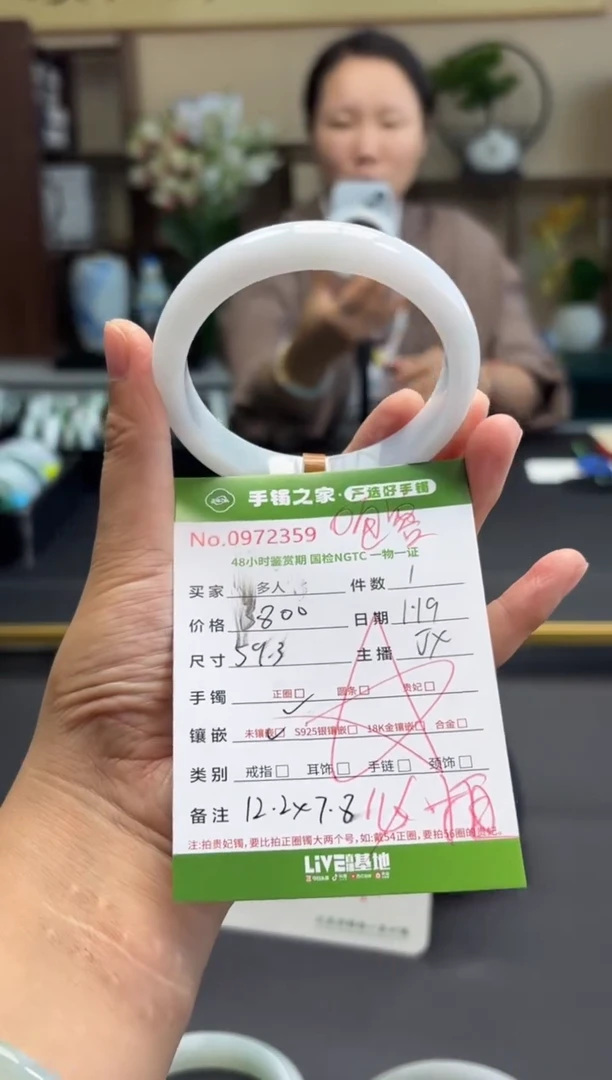 手镯之家·严选好手镯
No.0972359
48小时鉴赏期 国检NGTC 一物一证
买家 多人 件数 1
价格 3800 日期 1.19
尺寸 59.3 主播 JX
手镯 正圈☑ 圆条☐ 贵妃☐
镶嵌 未镶嵌☑ S925银镶嵌☐ 18K金镶嵌☐ 合金☐
类别 戒指☐ 耳饰☐ 手链☐ 颈饰☐
备注 12.2×7.8
注:拍贵妃镯,要比拍正圈镯大两个号,如:戴54正圈,要拍56圈的贵妃。
LIVE 基地